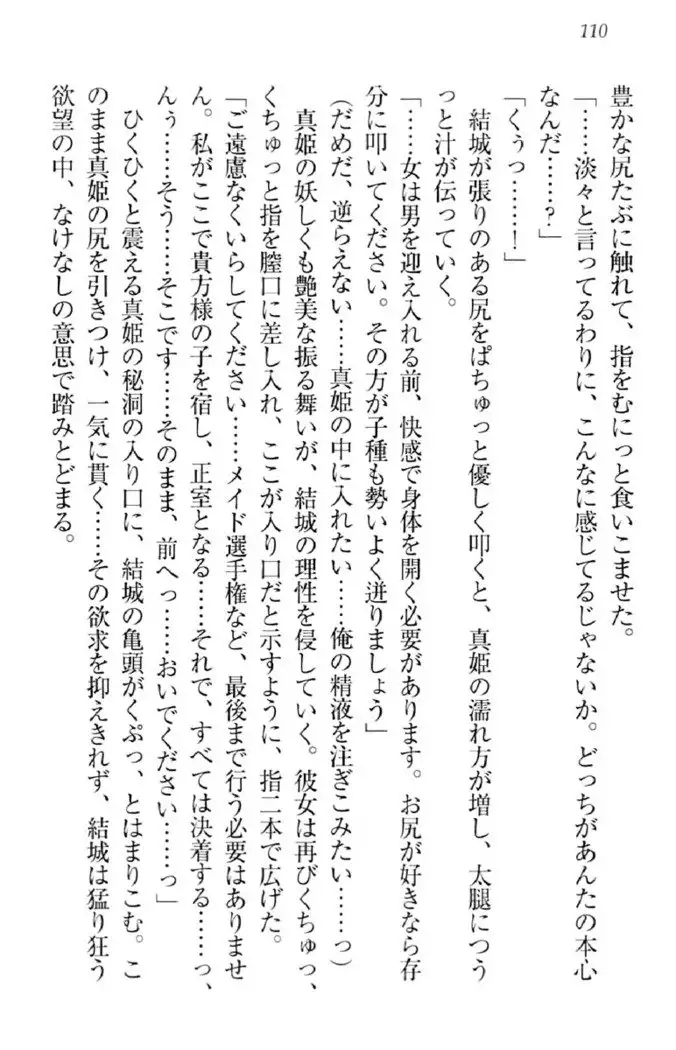 110
豊かな尻たぶに触れて、指をむにっと食いこませた。
「……淡々と言ってるわりに、こんなに感じてるじゃないか。どっちがあんたの本心
なんだ……？」
「くぅっ……！」
結城が張りのある尻をぱちゅっと優しく叩くと、真姫の濡れ方が増し、太腿につう
っと汁が伝っていく。
「……女は男を迎え入れる前、快感で身体を開く必要があります。お尻が好きなら存
分に叩いてください。その方が子種も勢いよく迸りましょう」
（だめだ、逆らえない……真姫の中に入れたい……俺の精液を注ぎこみたい……っ）
真姫の妖しくも艶美な振る舞いが、結城の理性を侵していく。彼女は再びくちゅっ、
くちゅっと指を膣口に差し入れ、ここが入り口だと示すように、指二本で広げた。
「ご遠慮なくいらしてください……メイド選手権など、最後まで行う必要はありませ
ん。私がここで貴方様の子を宿し、正室となる……それで、すべては決着する……っ、
んぅ……そう……そこです……そのまま、前へっ……おいでください……っ」
ひくひくと震える真姫の秘洞の入り口に、結城の亀頭がくぷっ、とはまりこむ。こ
のまま真姫の尻を引きつけ、一気に貫く……その欲求を抑えきれず、結城は猛り狂う
欲望の中、なけなしの意思で踏みとどまる。